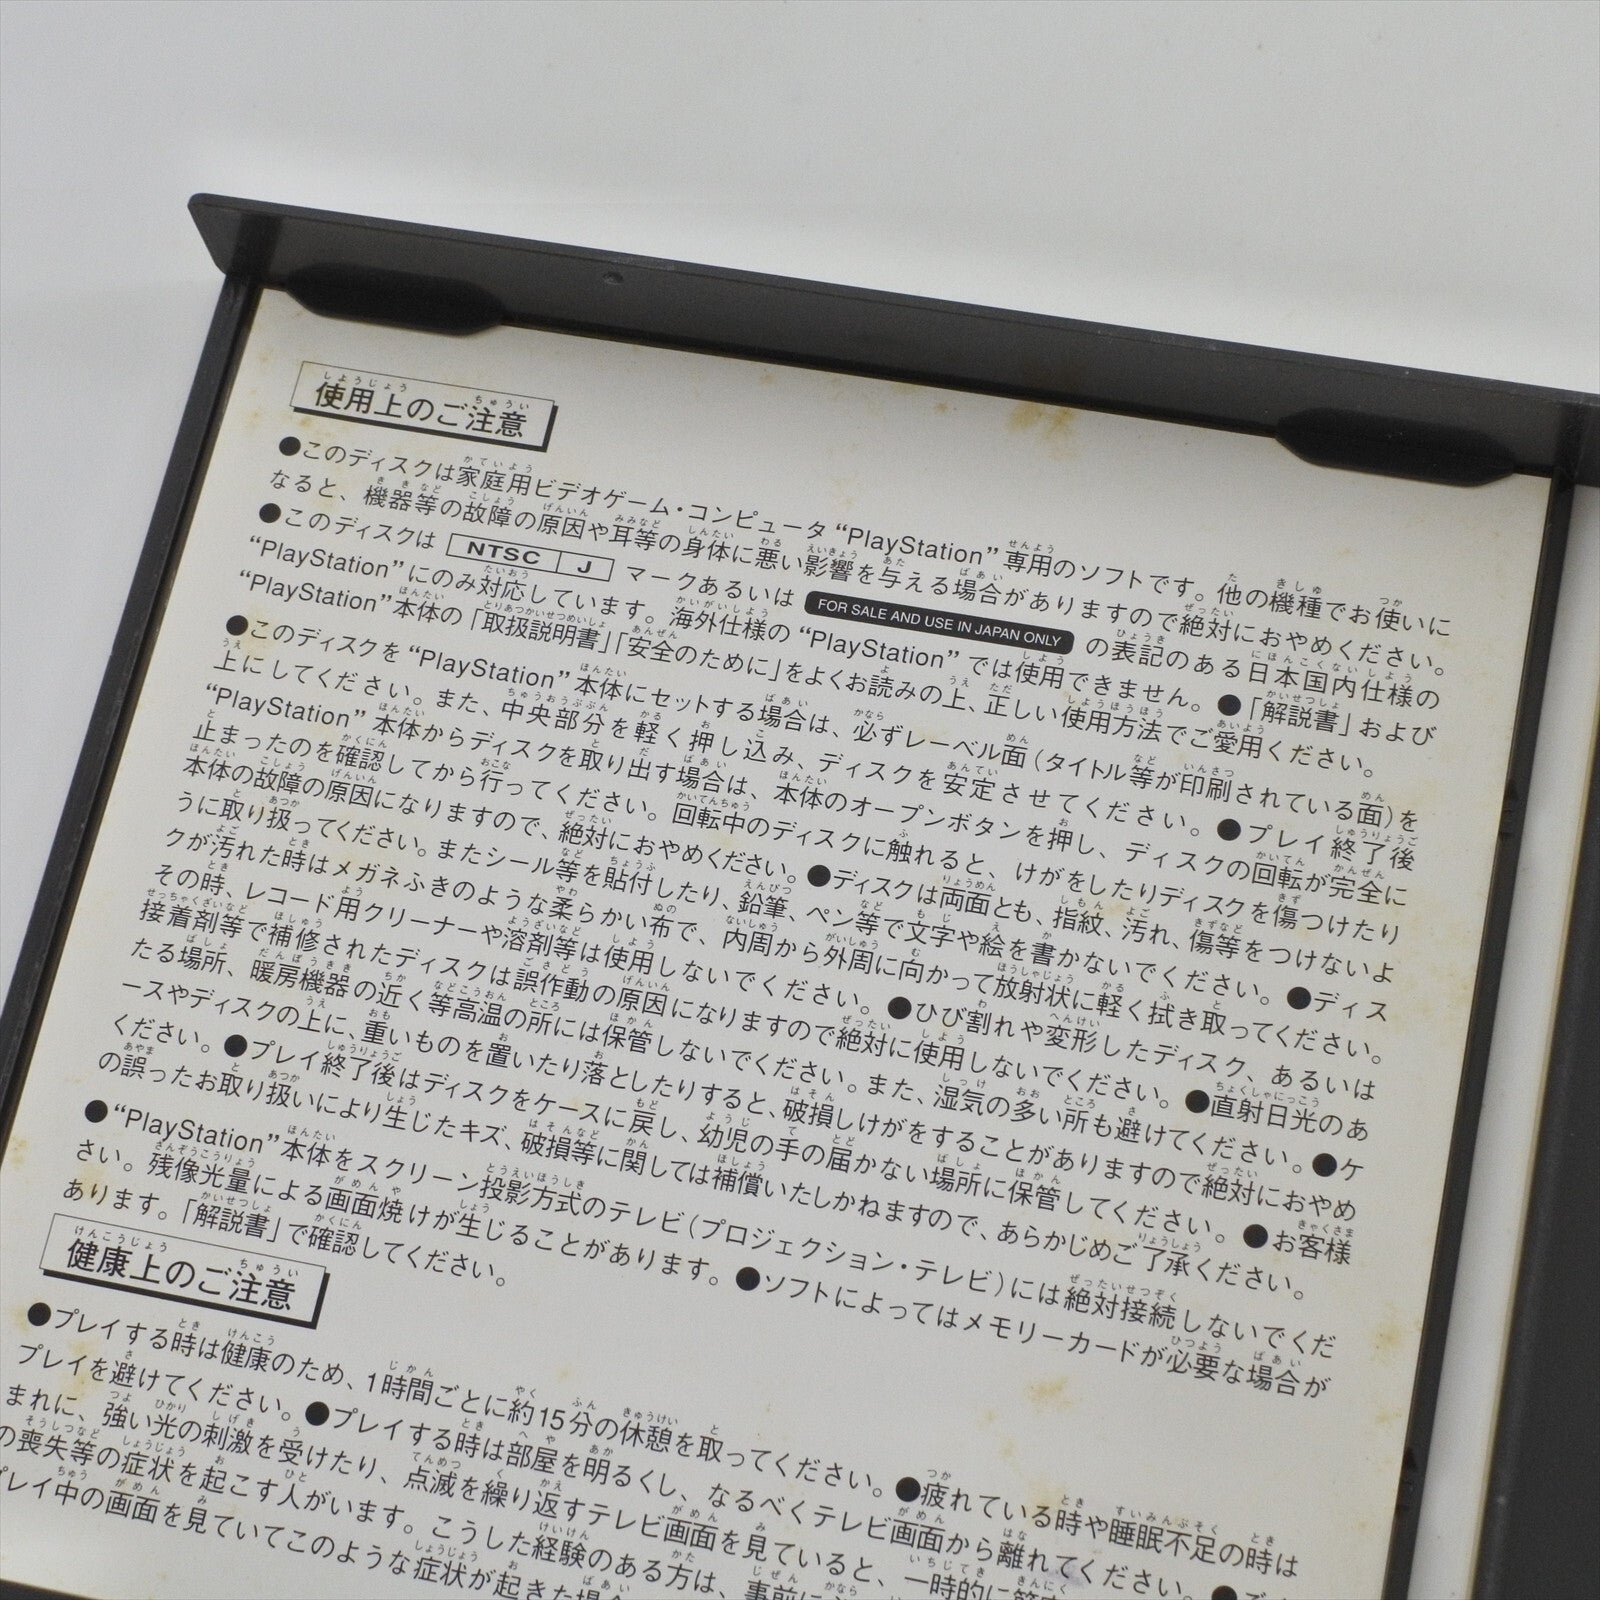 使用上のご注意
●このディスクは家庭用ビデオゲーム・コンピュータ“PlayStation”専用のソフトです。他の機種でお使いに
なると、機器等の故障の原因や耳等の身体に悪い影響を与える場合がありますので絶対におやめください。
●このディスクは NTSC J マークあるいは FOR SALE AND USE IN JAPAN ONLY の表記のある日本国内仕様の
“PlayStation”にのみ対応しています。海外仕様の“PlayStation”では使用できません。●「解説書」および
“PlayStation”本体の「取扱説明書」「安全のために」をよくお読みの上、正しい使用方法でご愛用ください。
●このディスクを“PlayStation”本体にセットする場合は、必ずレーベル面(タイトル等が印刷されている面)を
上にしてください。また、中央部分を軽く押し込み、ディスクを安定させてください。●プレイ終了後
“PlayStation”本体からディスクを取り出す場合は、本体のオープンボタンを押し、ディスクの回転が完全に
止まったのを確認してから行ってください。回転中のディスクに触れると、けがをしたりディスクを傷つけたり
本体の故障の原因になりますので、絶対におやめください。●ディスクは両面とも、指紋、汚れ、傷等をつけないよ
うに取り扱ってください。またシール等を貼付したり、鉛筆、ペン等で文字や絵を書かないでください。●ディス
クが汚れた時はメガネふきのような柔らかい布で、内周から外周に向かって放射状に軽く拭き取ってください。
その時、レコード用クリーナーや溶剤等は使用しないでください。●ひび割れや変形したディスク、あるいは
接着剤等で補修されたディスクは誤作動の原因になりますので絶対に使用しないでください。●直射日光のあ
たる場所、暖房機器の近く等高温の所には保管しないでください。また、湿気の多い所も避けてください。●ケ
ースやディスクの上に、重いものを置いたり落としたりすると、破損しけがをすることがありますので絶対におやめ
ください。●プレイ終了後はディスクをケースに戻し、幼児の手の届かない場所に保管してください。●お客様
の誤ったお取り扱いにより生じたキズ、破損等に関しては補償いたしかねますので、あらかじめご了承ください。
●“PlayStation”本体をスクリーン投影方式のテレビ(プロジェクション・テレビ)には絶対接続しないでくだ
さい。残像光量による画面焼けが生じることがあります。●ソフトによってはメモリーカードが必要な場合が
あります。「解説書」で確認してください。
健康上のご注意
●プレイする時は健康のため、1時間ごとに約15分の休憩を取ってください。●疲れている時や睡眠不足の時は
プレイを避けてください。●プレイする時は部屋を明るくし、なるべくテレビ画面から離れてください。●
まれに、強い光の刺激を受けたり、点滅を繰り返すテレビ画面を見ていると、一時的に
の喪失等の症状を起こす人がいます。こうした経験のある方は、事前に
プレイ中の画面を見ていてこのような症状が起きた場合